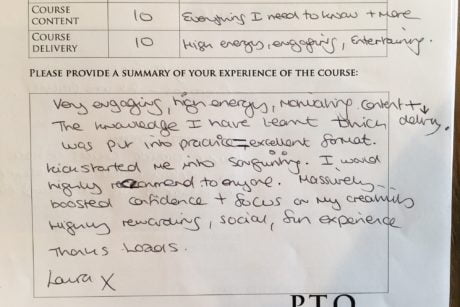 COURSE CONTENT 10 Everything I need to know + more
COURSE DELIVERY 10 High energy, engaging, Entertaining.
PLEASE PROVIDE A SUMMARY OF YOUR EXPERIENCE OF THE COURSE:
Very engaging, high energy, Motivating content + delivery.
The knowledge I have learnt
was put into practice = excellent format.
kick started me into songwriting. I would
highly recommend to anyone. Massively
boosted confidence + focus on my creativity
Highly rewarding, social, fun experience
Thanks Loads.
Laura X
PTO